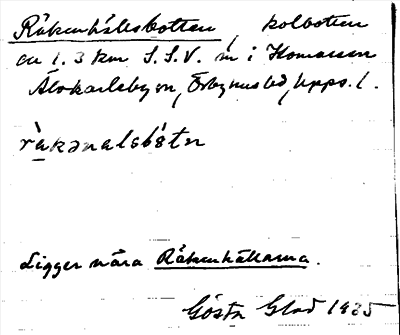 Råkenhällsbotten, kolbotten
ca 1.3 km S.S.V. m i Thomassen
Älvkarleby sn, Örbyhus hd, Upps. l.
råkənalsbòtn
Ligger nära Råkenhällarna.
Gösta Glad 1925